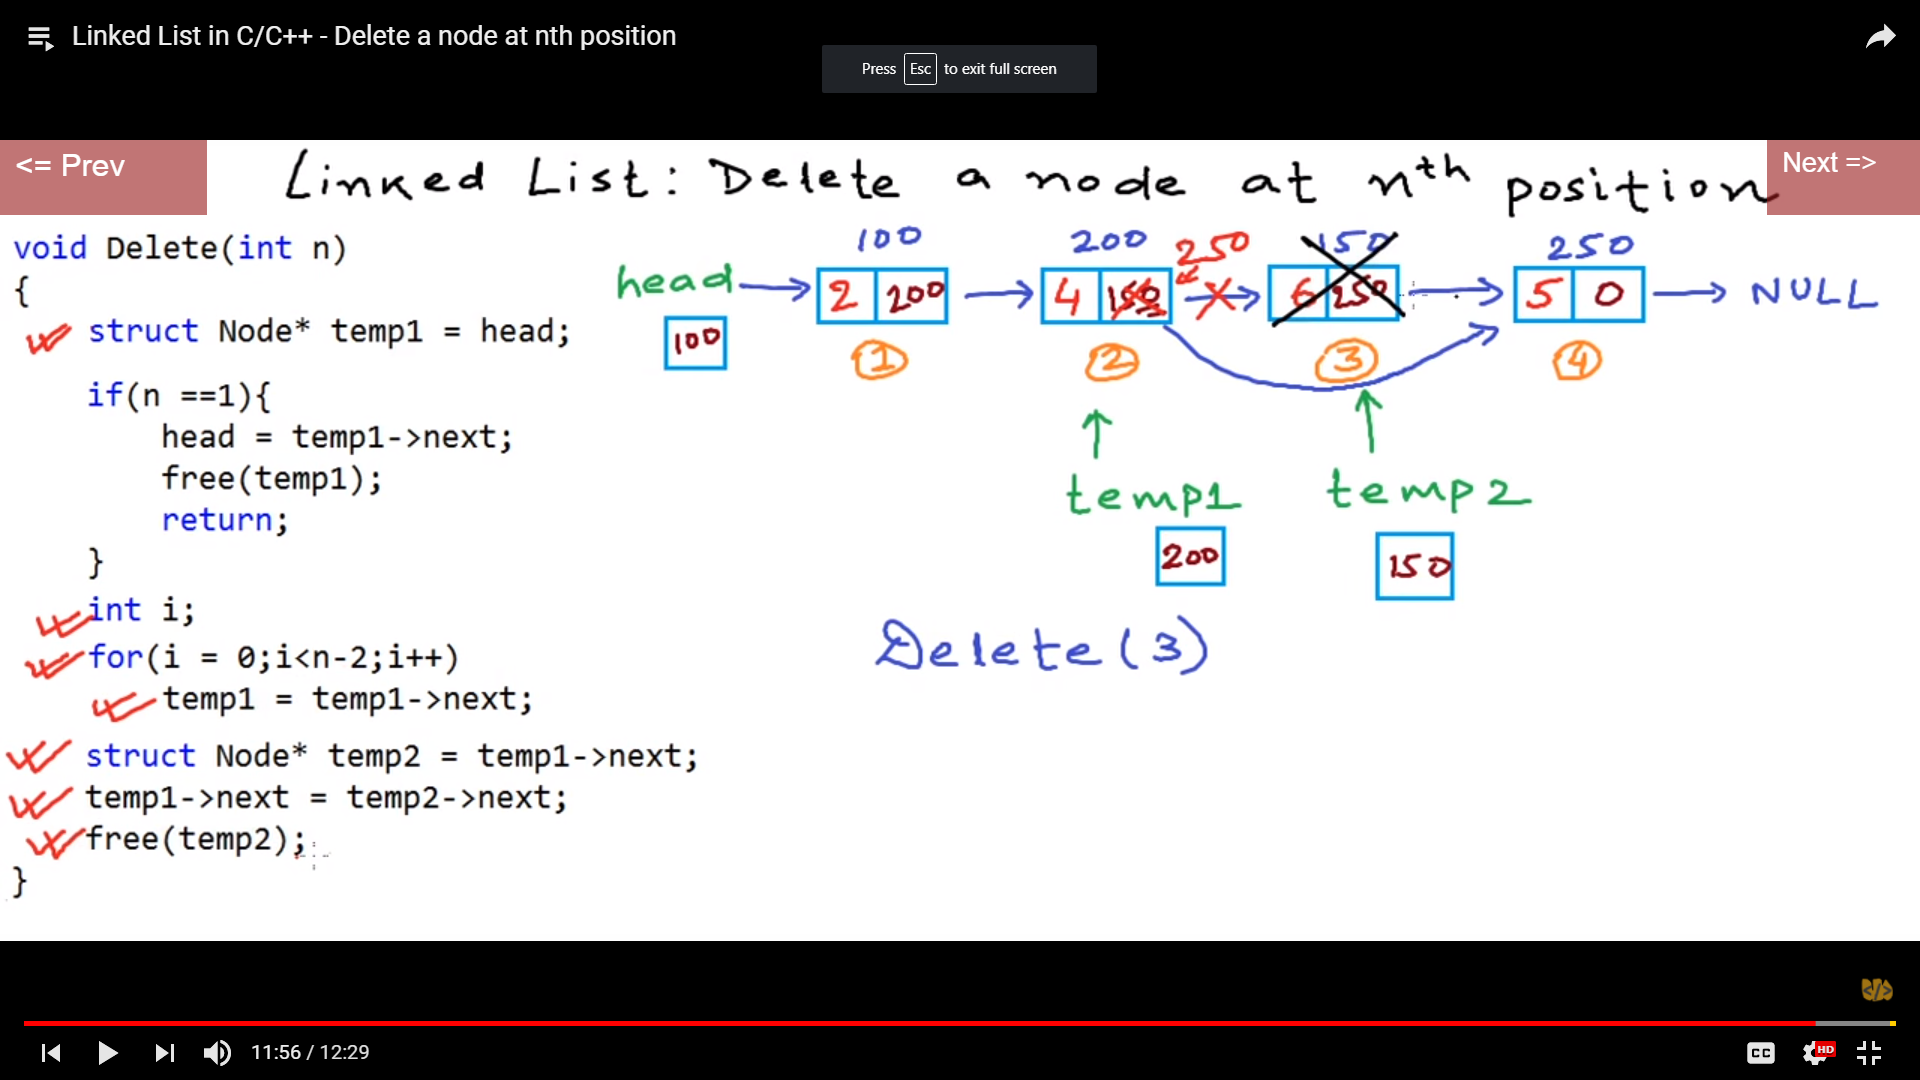 Linked List in C/C++ - Delete a node at nth position
Press Esc to exit full screen
<= Prev
Linked List: Delete a node at nth position
Next =>
void Delete(int n)
{
struct Node* temp1 = head;
if(n ==1){
head = temp1->next;
free(temp1);
return;
}
int i;
for(i = 0;i<n-2;i++)
temp1 = temp1->next;
struct Node* temp2 = temp1->next;
temp1->next = temp2->next;
free(temp2);
}
100 200 250 150 250
head 2 200 4 150 6 250 5 0 NULL
100
1 2 3 4
temp1 temp2
200 150
Delete(3)
</>
11:56 / 12:29
CC HD